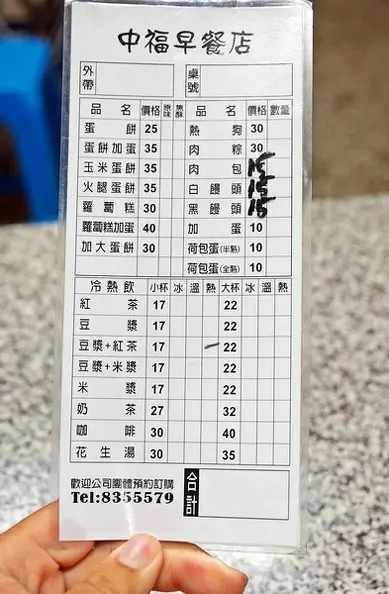 中福早餐店
外帶 桌號
品名 價格 原味 焦酥 品名 價格 數量
蛋餅 25 熱狗 30
蛋餅加蛋 35 肉粽 30
玉米蛋餅 35 肉包 15
火腿蛋餅 35 白饅頭 15
蘿蔔糕 30 黑饅頭 15
蘿蔔糕加蛋 40 加蛋 10
加大蛋餅 30 荷包蛋(半熟) 10
荷包蛋(全熟) 10
冷熱飲 小杯 冰 溫 熱 大杯 冰 溫 熱
紅茶 17 22
豆漿 17 22
豆漿+紅茶 17 22
豆漿+米漿 17 22
米漿 17 22
奶茶 27 32
咖啡 30 40
花生湯 30 35
歡迎公司團體預約訂購
Tel:8355579
合計